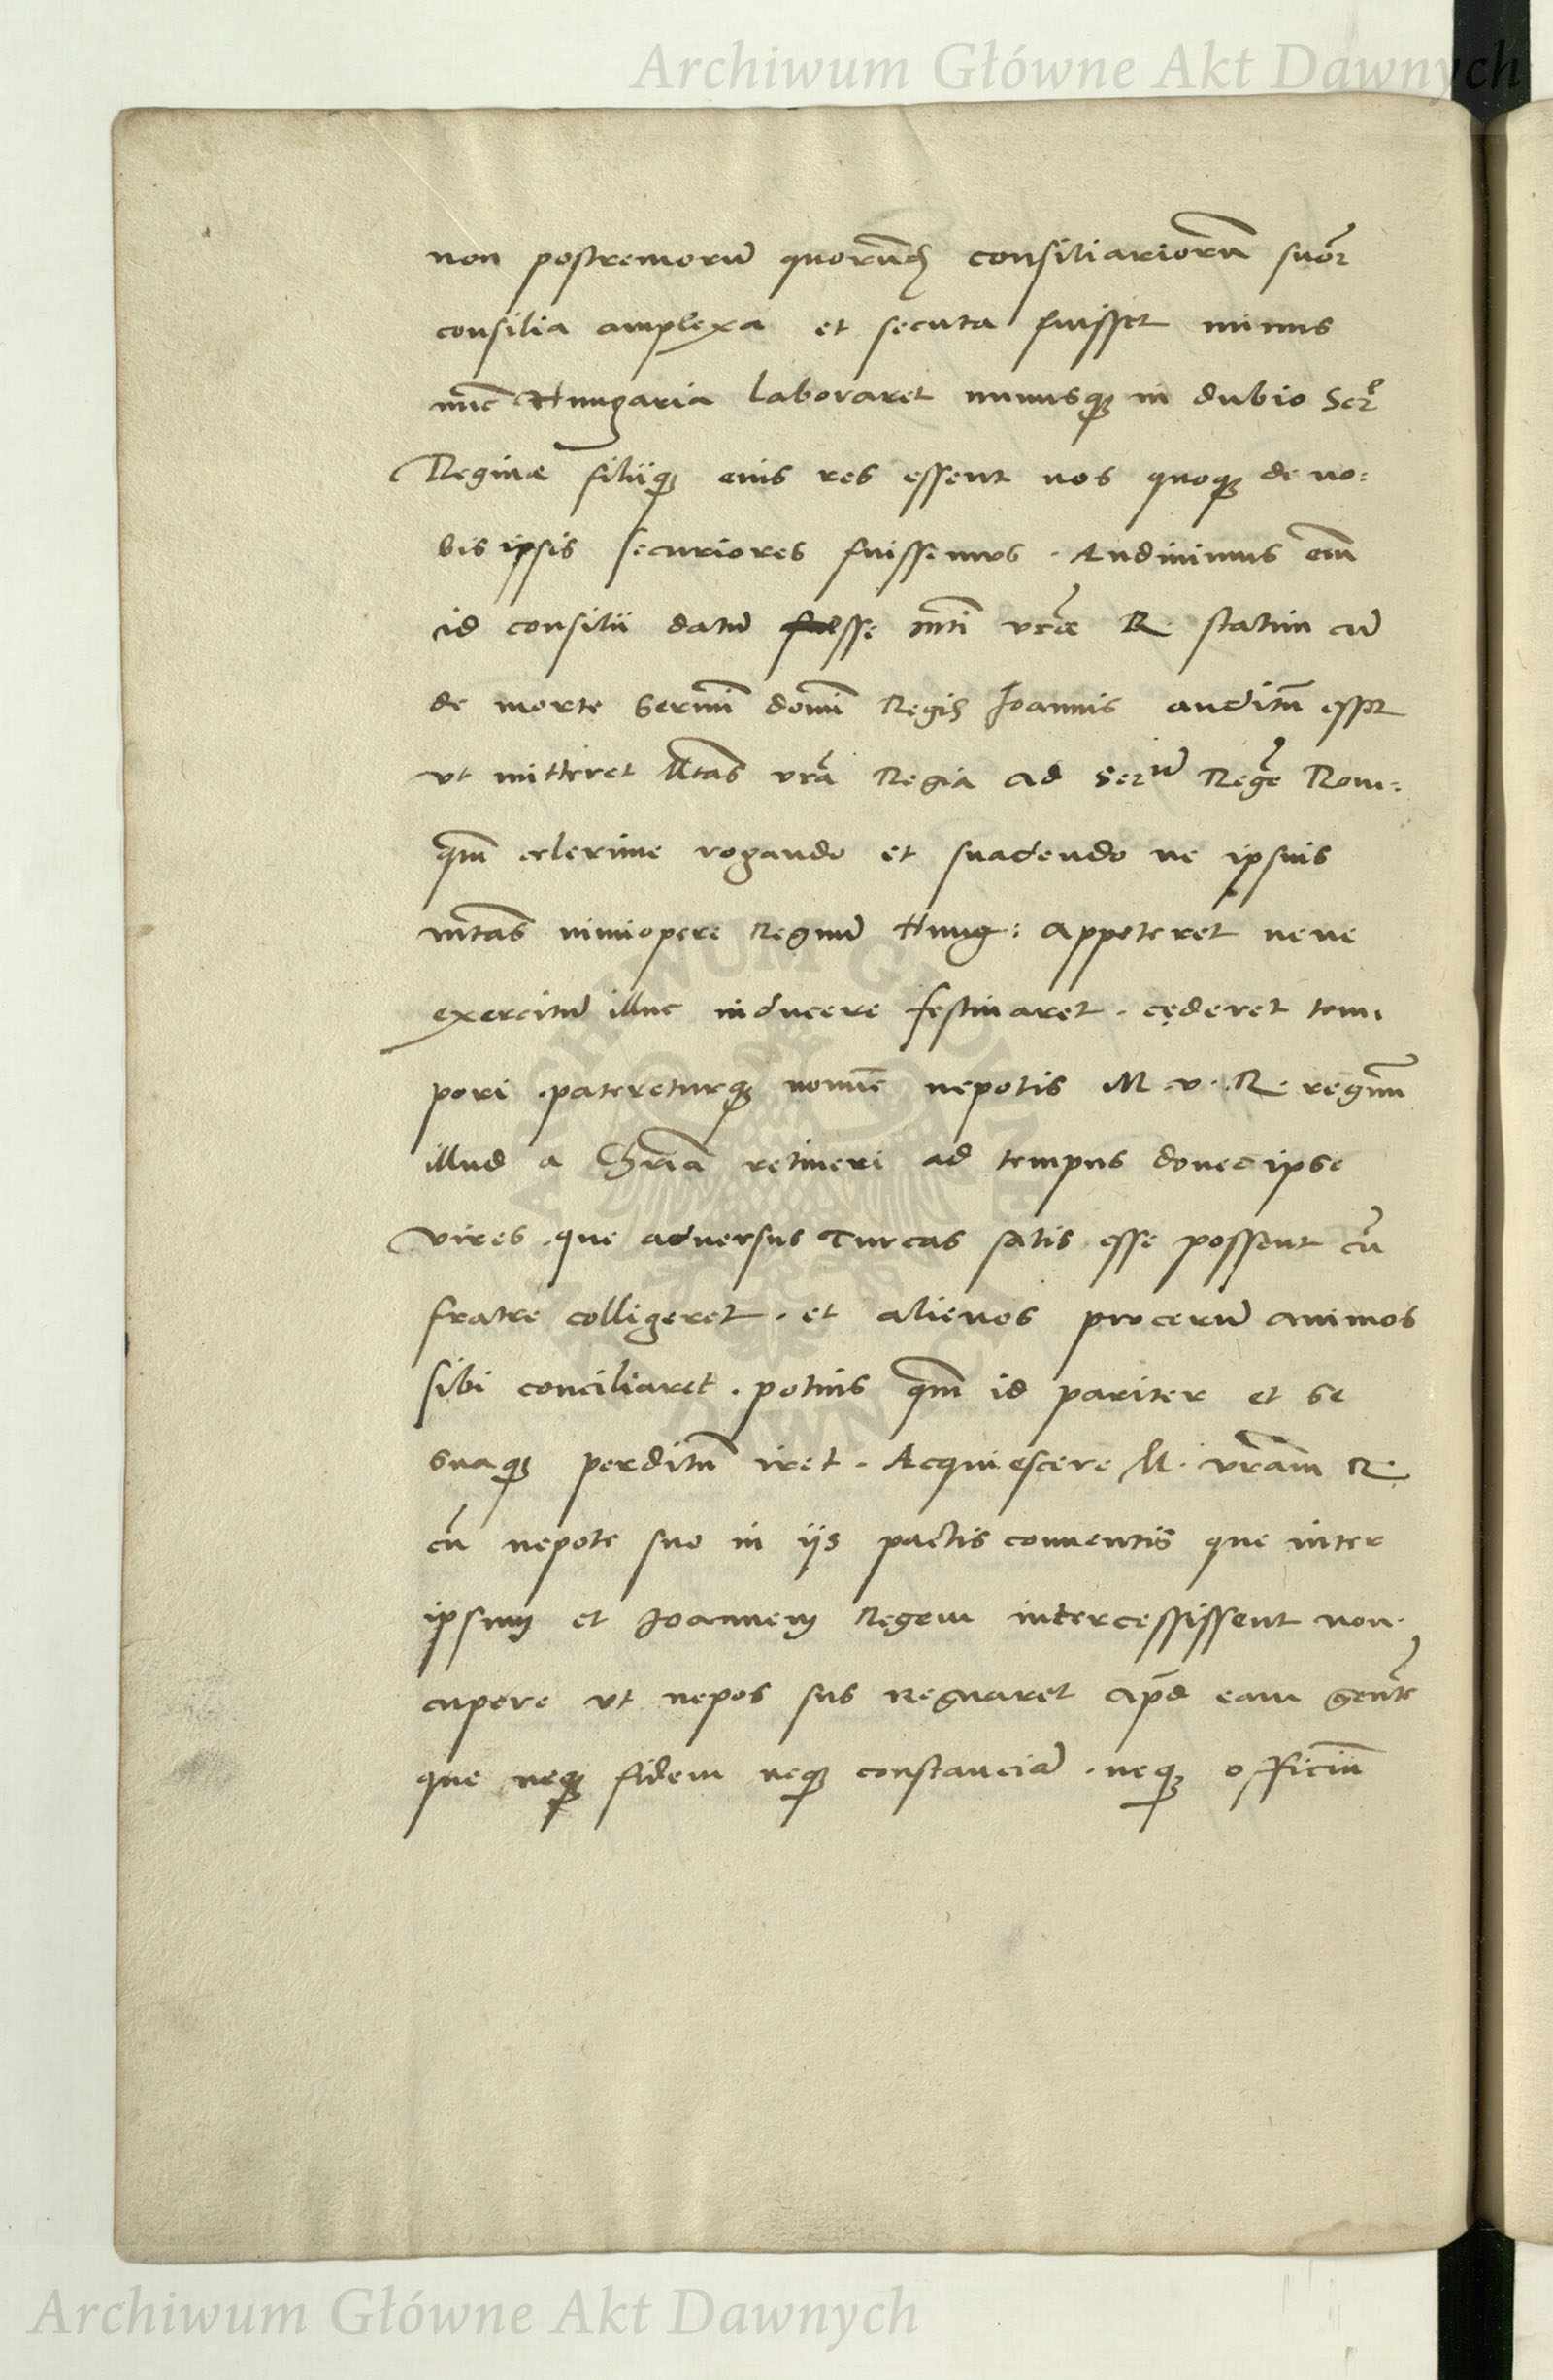 Archiwum Główne Akt Dawnych
non postremorū quorūdā consiliariorū suoꝝ
consilia amplexa et secuta fuisset minus
nūc Hungaria laboraret minusqꝫ in dubio Ser
Reginæ filiiqꝫ eius res essent nos quoqꝫ de no:
bis ipsis securiores fuissemus . Audiuimus em̄
id consilii datū esse mti vræ R. statim cū
de morte Sermi domi Regis Joannis auditū esset
vt mitteret Mtas vrā Regia ad Serū Regē Rom:
qm̄ celerime rogando et suadendo ne ipsius
mtas nimiopere Regnū Hung: appeteret neue
exercitū illuc inducere festinaret . cęderet tem,
pori . patereturqꝫ nomīe nepotis M. v. R. regnū
illud a Chriā retineri ad tempus donec ipse
vires . que aduersus Turcas satis esse possent cū
fratre colligeret . et alienos procerū animos
sibi conciliaret . potius qm̄ id pariter et se
suaqꝫ perditū iret . Acquiescere M. vrām R.
cū nepote suo in iis pactis conuentis que inter
ipsum et Joannem Regem intercessissent non.
cupere vt nepos sus regnaret apd eam gentē
que neqꝫ fidem neqꝫ constanciā . neqꝫ officiū
Archiwum Główne Akt Dawnych